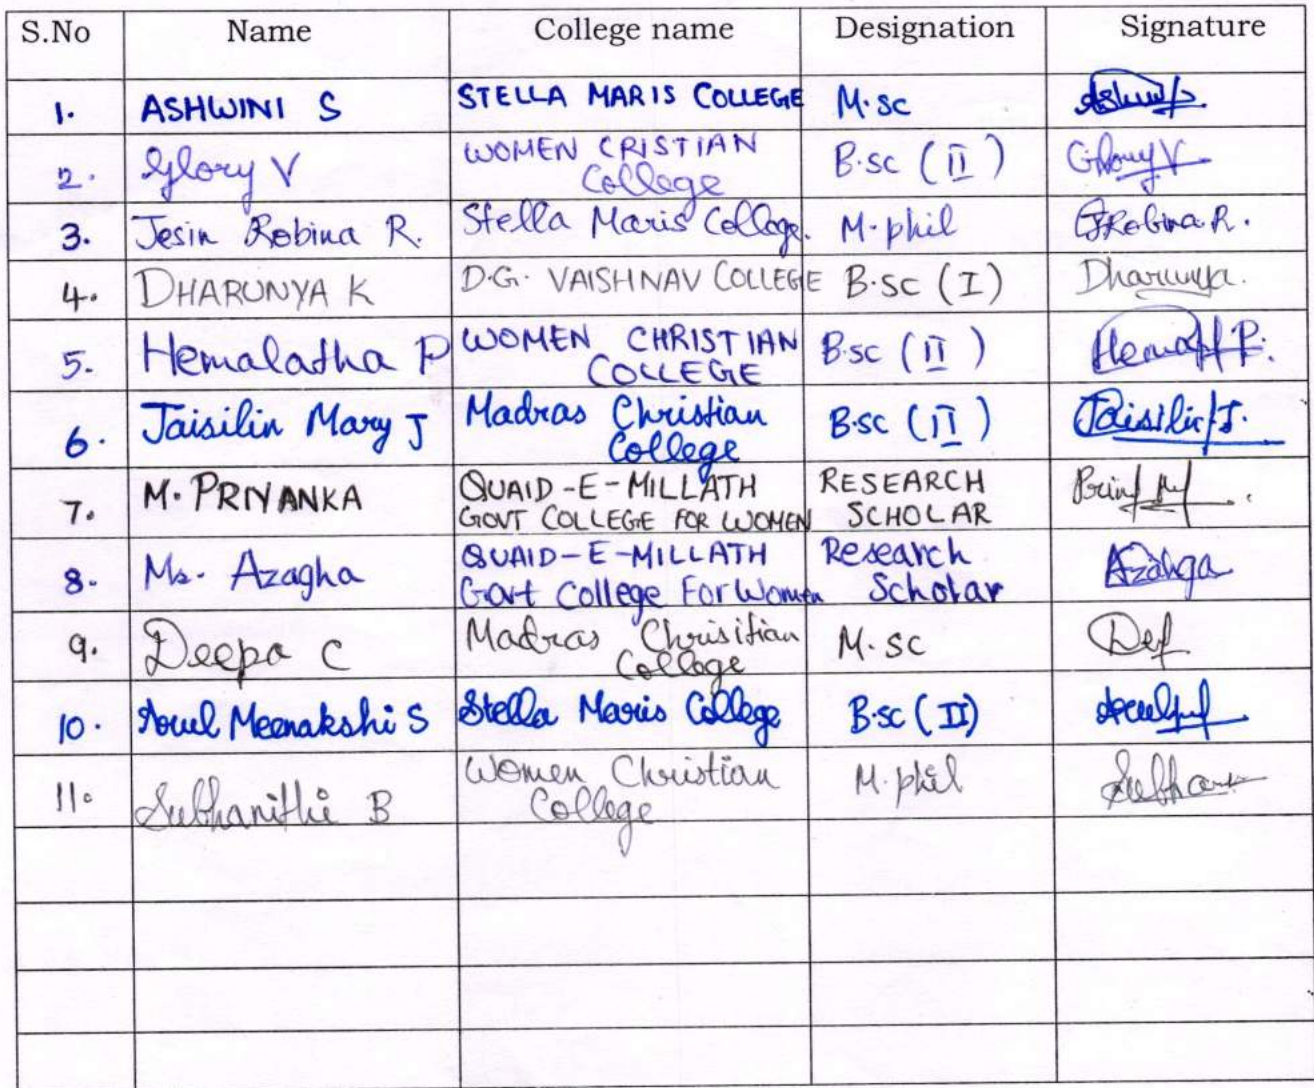 S.No Name College name Designation Signature
1. ASHWINI S STELLA MARIS COLLEGE M.sc
2. Glory V WOMEN CRISTIAN College B.sc (II) Glory V
3. Jesin Robina R. Stella Maris College. M.phil JRobina R.
4. DHARUNYA K D.G. VAISHNAV COLLEGE B.sc (I) Dharunya.
5. Hemalatha P WOMEN CHRISTIAN COLLEGE B.sc (II)
6. Jaisilin Mary J Madras Christian College B.sc (II) Jaisilin J.
7. M. PRIYANKA QUAID-E-MILLATH GOVT COLLEGE FOR WOMEN RESEARCH SCHOLAR
8. Ms. Azagha QUAID-E-MILLATH Govt College For Women Research Scholar Azahga
9. Deepa C Madras Chrisitian College M.sc
10. Arul Meenakshi S Stella Maris College B.sc (II)
11. Subhanithi B Women Christian College M.phil